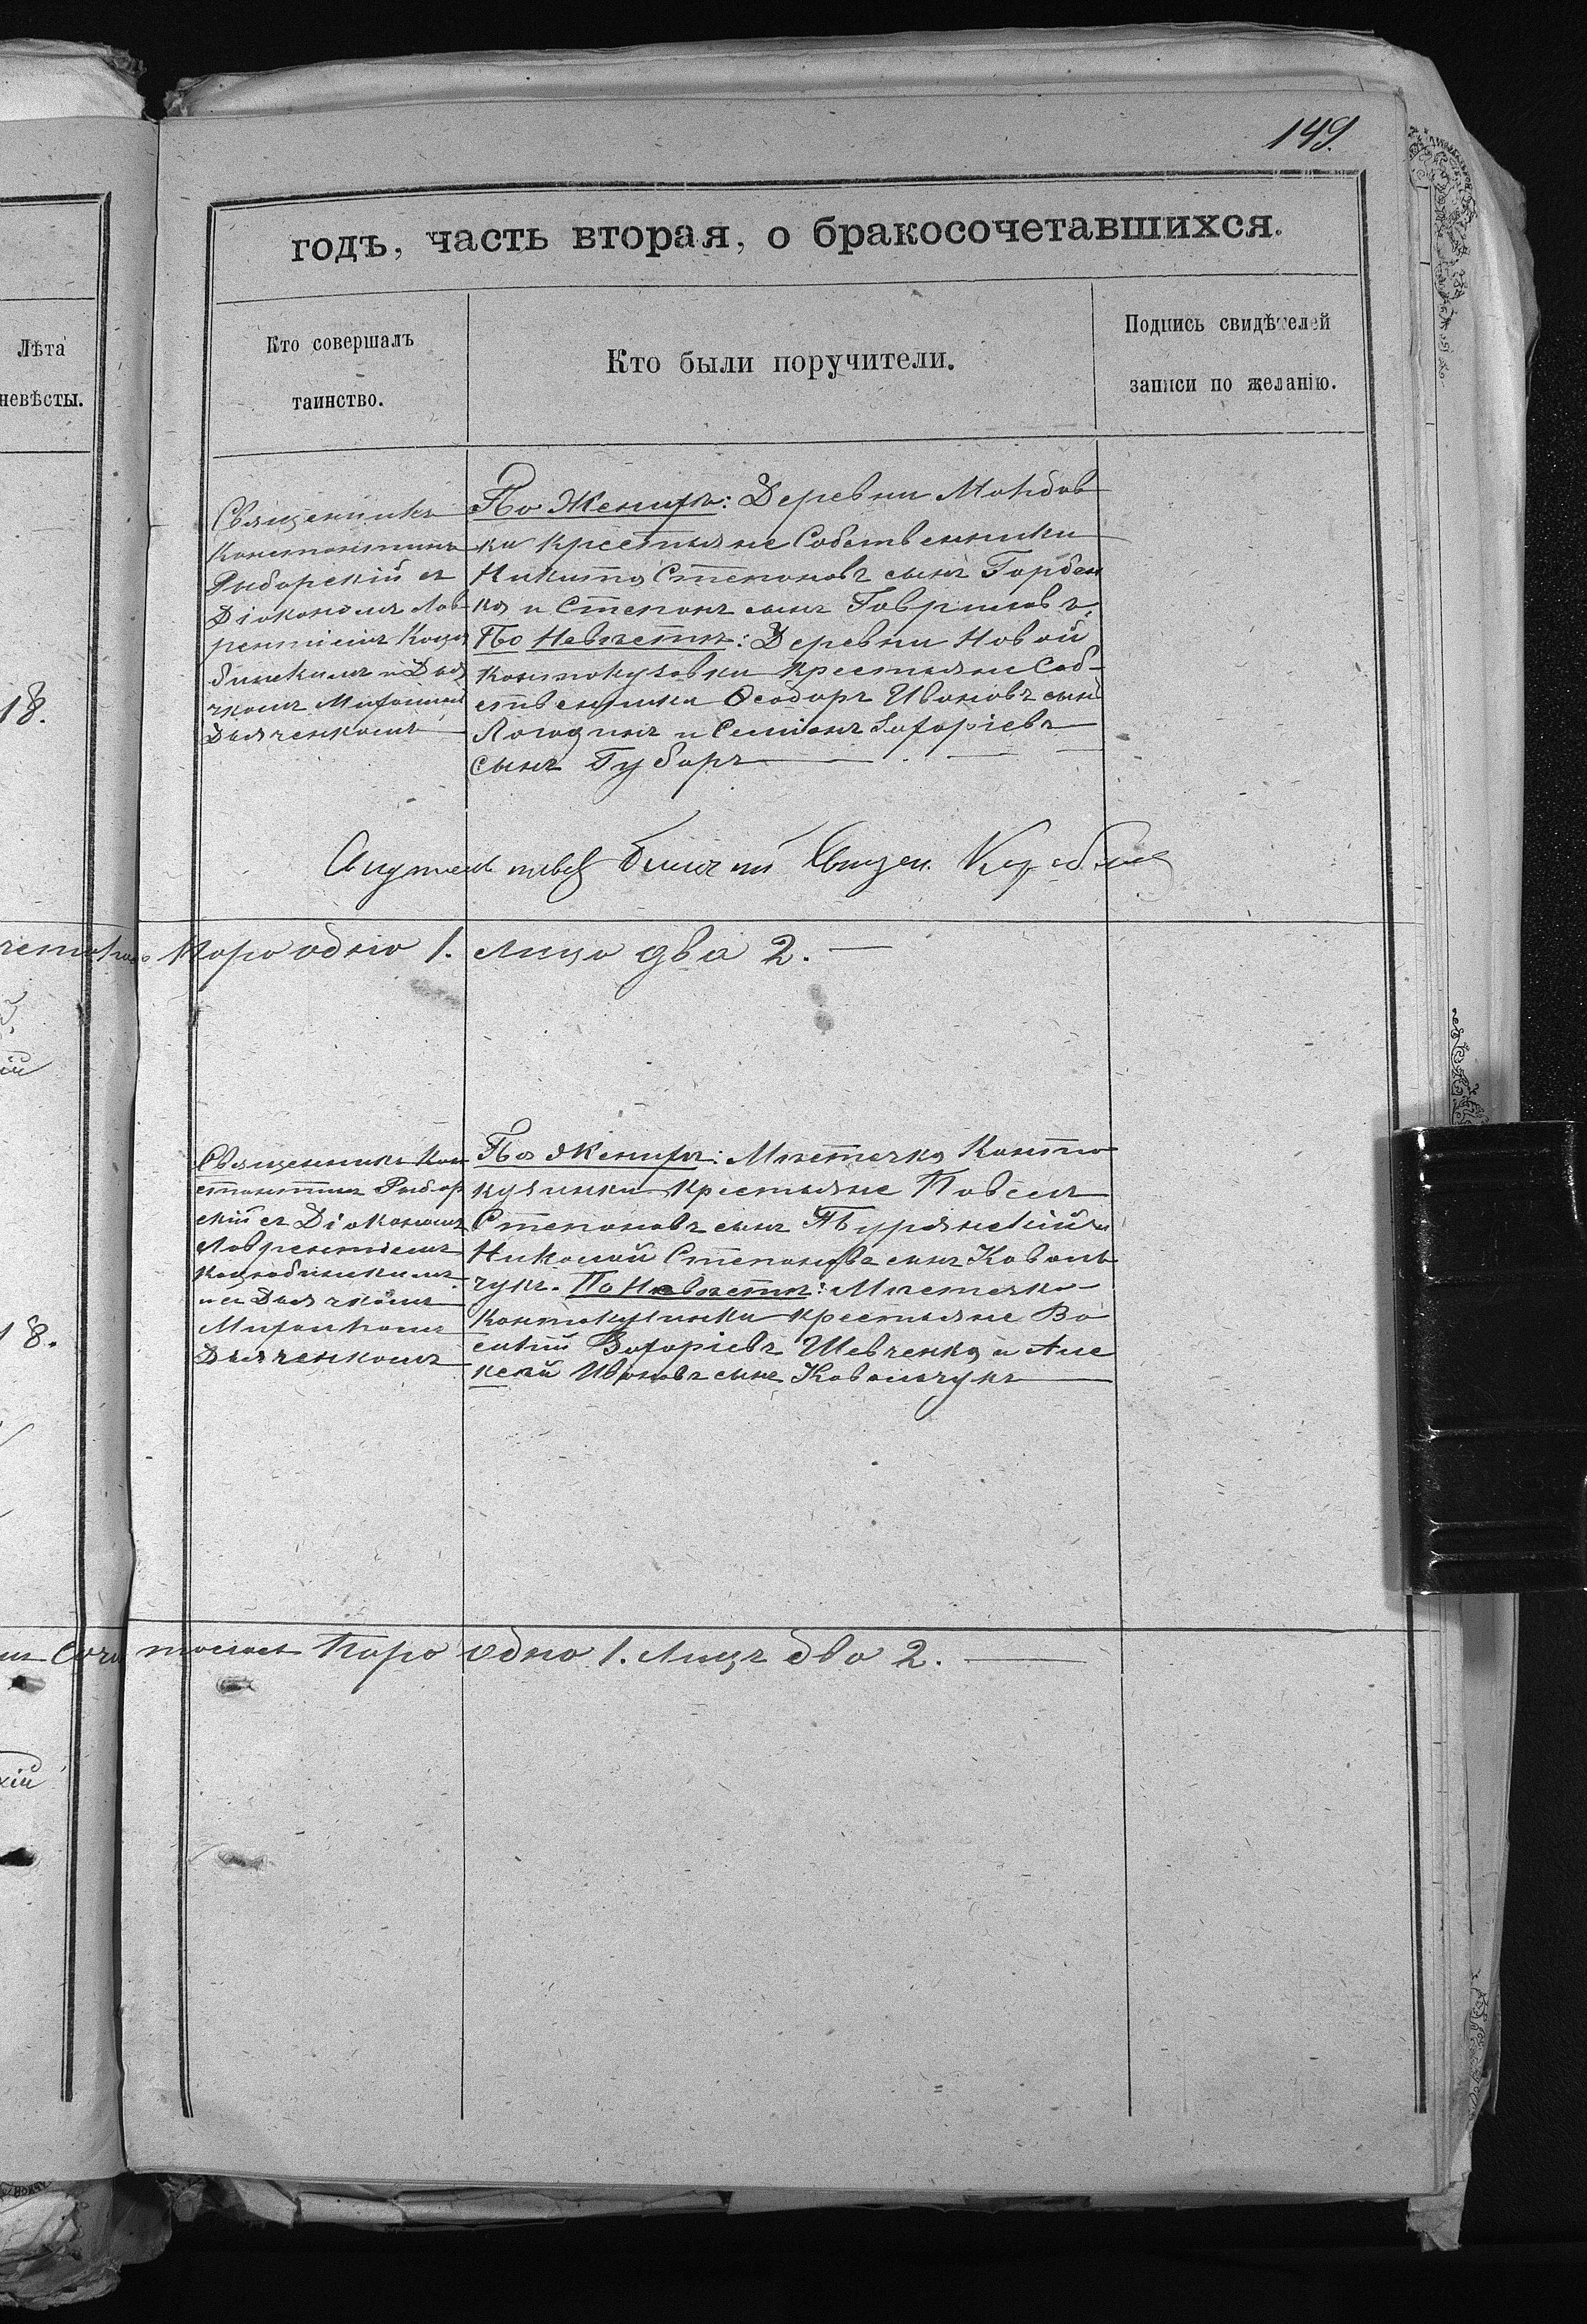 149.
годъ, часть вторая, о бракосочетавшихся.
Лѣта
невѣсты.
Кто совершалъ
таинство.
Кто были поручители.
Подпись свидѣтелей
записи по желанію.
18.
Священникъ
Константинъ
Рыборскій съ
Діакономъ Лав-
рентіемъ Коцю
бинскимъ и Дья
чкомъ
Дьяченкомъ
По Женихѣ: Деревни Манков
ки крестьяне Собственники
Никита Степановъ сынъ Горбен
ко и Степанъ сынъ Гавриловъ.
По Невѣстѣ: Деревни Новой
Контокузовки крестьяне Соб-
ственники Ѳеодоръ Ивановъ сынъ
и Симіонъ Захаріевъ
сынъ Губарь
Пара одна 1. лица два 2.
18.
Священникъ Кон
стантинъ Рыбор
скій съ Діакономъ
Лаврентіемъ
Коцюбинскимъ
и съ Дьячкомъ
Дьяченкомъ
По Женихѣ: Мѣстечка Канта
кузинки крестьяне Павелъ
Степановъ сынъ Турянскій и
Николай Степановъ сынъ Коваль
чукъ. По Невѣстѣ: Мѣстечка
Контакузинки крестьяне Ва
силій Захаріевъ Шевченко и Але
ксѣй Ивановъ сынъ Ковальчукъ
Пара одна 1. Лицъ два 2.